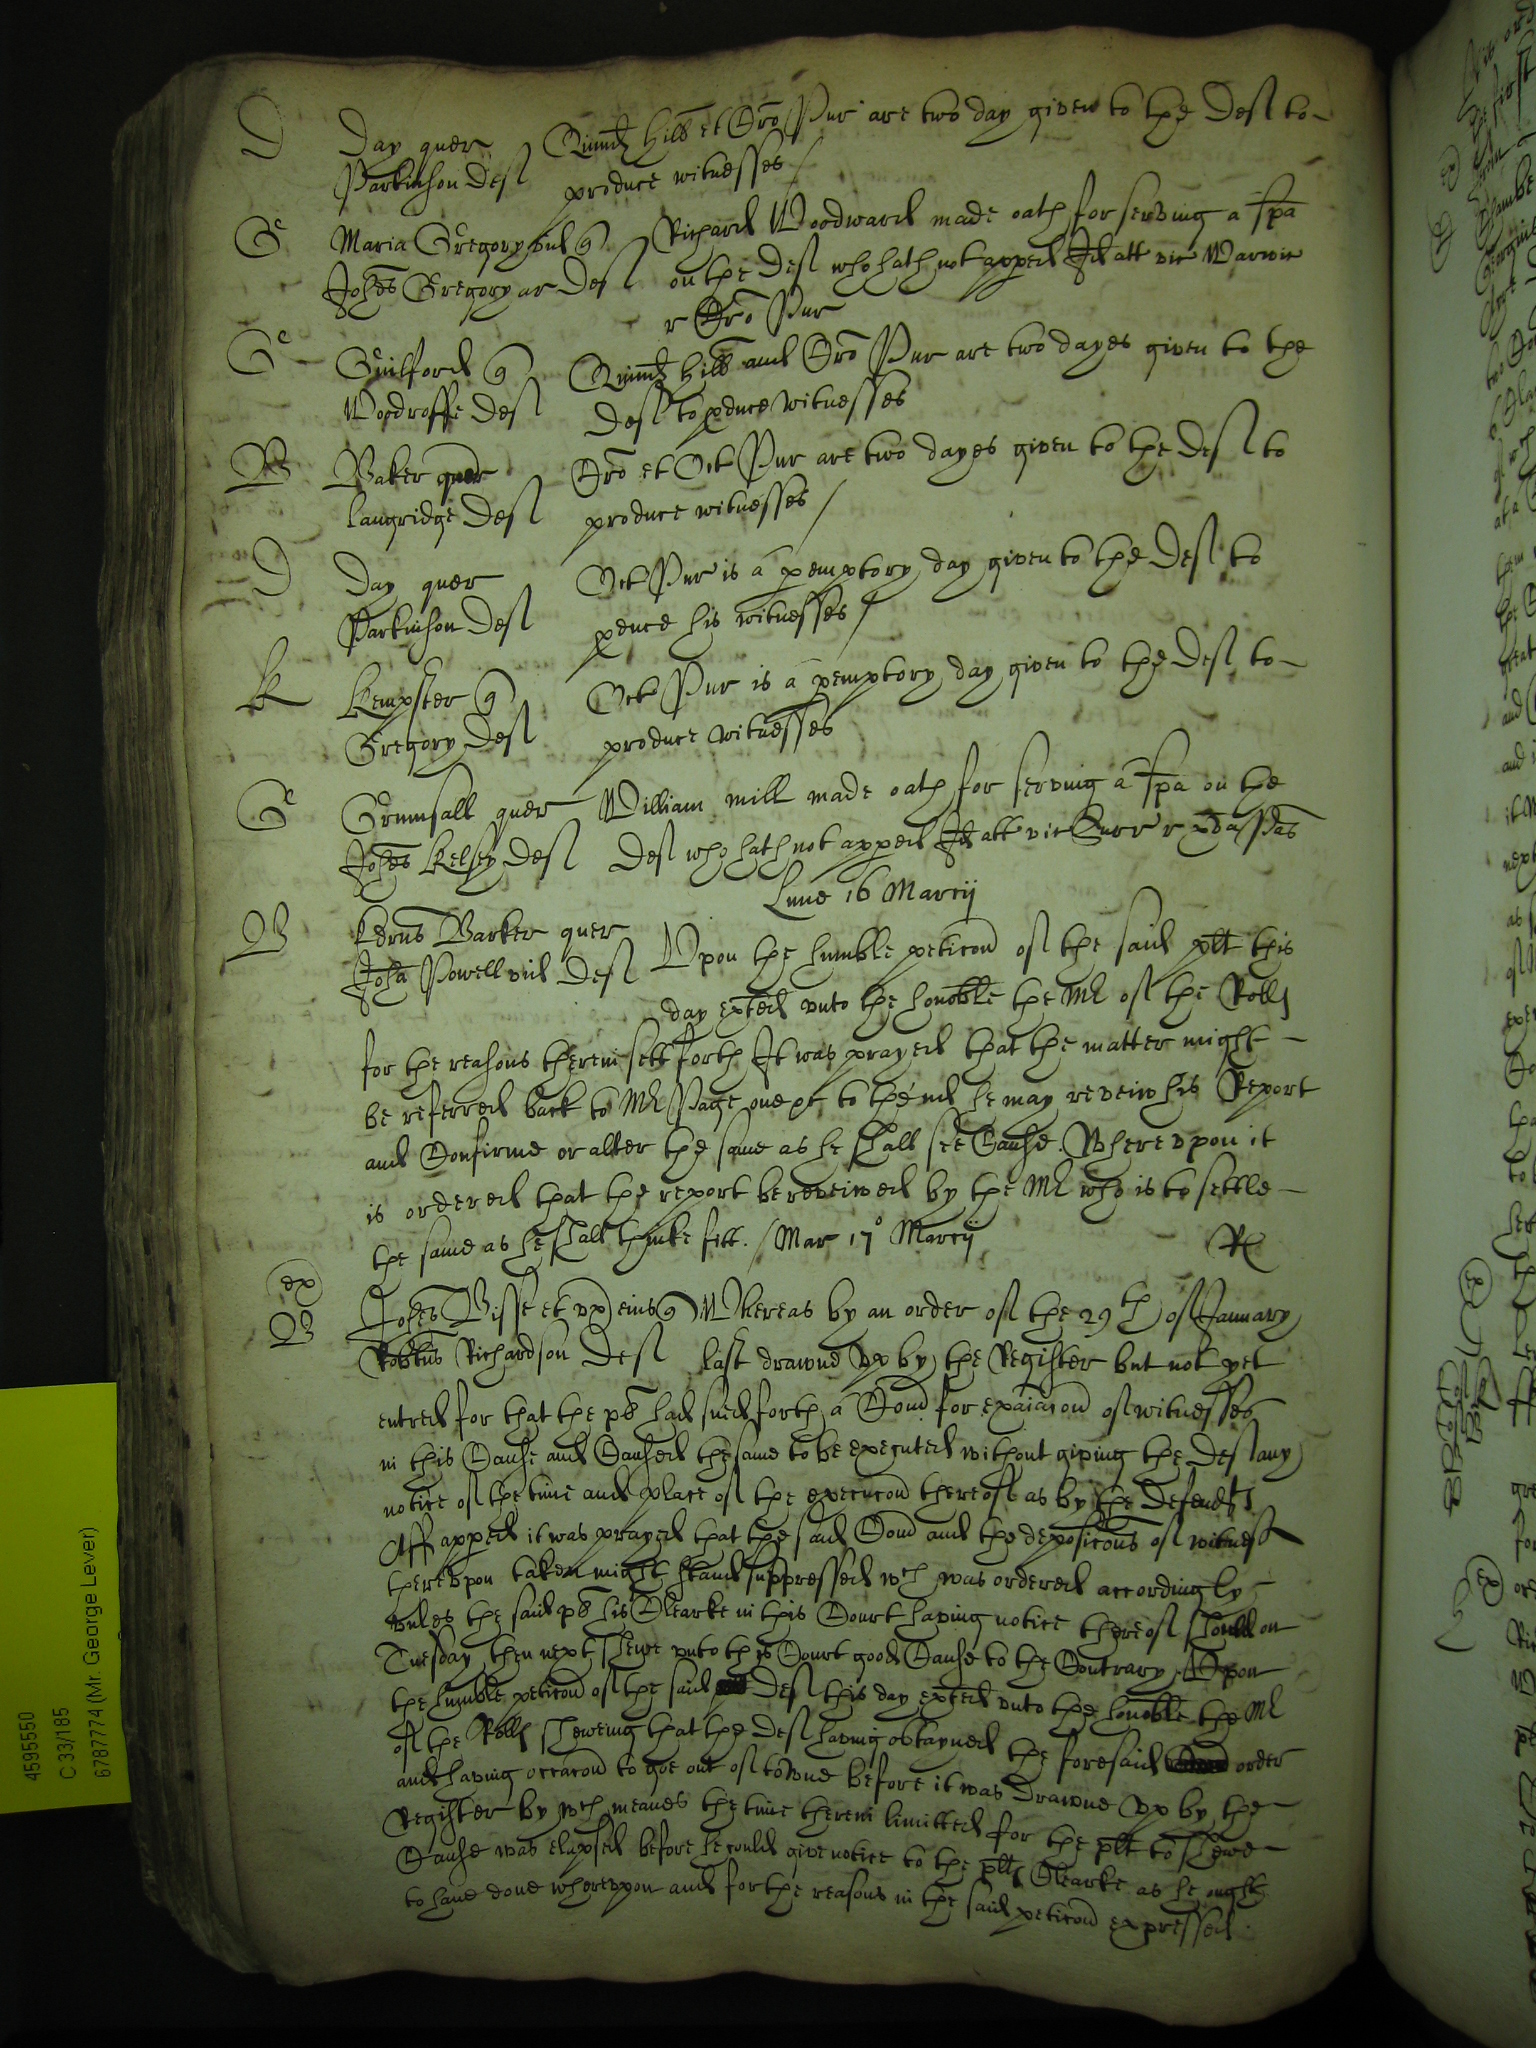 D Day quer Quind Hill et Cro Pur are two day given to the Deft to
Parkinson Deft produce witnesses
G Maria Gregory vid q Richard Woodward made oath for serving a spa
Johes Gregory ar Deft on the Deft who hath not apped Id att vic Warwic
r Cro Pur
G Guilford q Quind Hill and Cro Pur are two dayes given to the
Woodroffe Deft Deft to pduce witnesses
B Baker quer Cro et Oct Pur are two dayes given to the Deft to
Langridge Deft produce witnesses
D Day quer Oct Pur is a pemptory day given to the Deft to
Parkinson Deft pduce his witnesses
K Kempster q Oct Pur is a pemptory day given to the Deft to
Gregory Deft produce witnesses
G Grimsall quer William Mill made oath for serving a spa on the
Johes Kelsey Deft Deft who hath not apped Id att vic Surr r
Lune 16 Marcij
B Edrus Barker quer Upon the humble peticon of the said plt this
Joha Powell vid Deft
day exted unto the honoble the Mr of the Rolls
for the reasons therein sett forth It was prayed that the matter might
be referred back to Mr Page to thend he may reveiw his Report
and Confirme or alter the same as he shall see Cause. Whereupon it
is ordered that the report be reveiwed by the Mr who is to settle
the same as he shall thinke fitt. / Mar 17o Marcij
ex
B Johes Bisse et ux eius q Whereas by an order of the 29th of January
Robtus Richardson Deft last drawne up by the Register but not yet
entred for that the pl had sued forth a Com for exaiacon of witnesses
in this Cause and Caused the same to be executed without giving the Deft any
notice of the time and place of the execucon thereof as by the Defendts
Aff apped it was prayed that the said Com and the deposicons of witness
thereupon taken might stand suppressed wch was ordered accordingly
unles the said pl his Clearke in this Court having notice thereof should on
Tuesday then next shewe unto this Court good Cause to the Contrary Upon
the humble peticon of the said Deft this day exted unto the honoble the Mr
of the Rolls shewing that the Deft having obtayned the foresaid order
and having occacon to goe out of towne before it was drawne up by the
Register by wch meanes the time therein limitted for the plt to shewe
Cause was elapsed before he could give notice to the plts Clearke as he ought
to have done whereupon and for the reasons in the said peticon expressed
4595550
C 33/185
6787774 (Mr. George Lever)